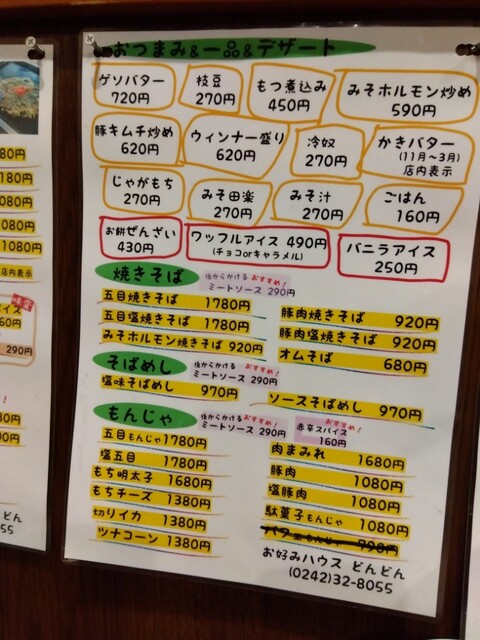 おつまみ&一品&デザート
ゲソバター
720円
枝豆
270円
もつ煮込み
450円
みそホルモン炒め
590円
豚キムチ炒め
620円
ウィンナー盛り
620円
冷奴
270円
かきバター
(11月〜3月)
店内表示
じゃがもち
270円
みそ田楽
270円
みそ汁
270円
ごはん
160円
お餅ぜんざい
430円
ワッフルアイス 490円
(チョコorキャラメル)
バニラアイス
250円
焼きそば
後からかける おすすめ!
ミートソース 290円
五目焼きそば 1780円
五目塩焼きそば 1780円
みそホルモン焼きそば 920円
豚肉焼きそば 920円
豚肉塩焼きそば 920円
オムそば 680円
そばめし
後からかける おすすめ!
ミートソース 290円
塩味そばめし 970円
ソースそばめし 970円
もんじゃ
後からかける おすすめ!
ミートソース 290円
おすすめ!
赤辛スパイス
160円
五目もんじゃ 1780円
塩五目 1780円
もち明太子 1680円
もちチーズ 1380円
切りイカ 1380円
ツナコーン 1380円
肉まみれ 1680円
豚肉 1080円
塩豚肉 1080円
駄菓子もんじゃ 1080円
お好みハウス どんどん
(0242)32-8055
80円
180円
080円
080円
1080円
店内表示
イス
60円
290円
どん
055